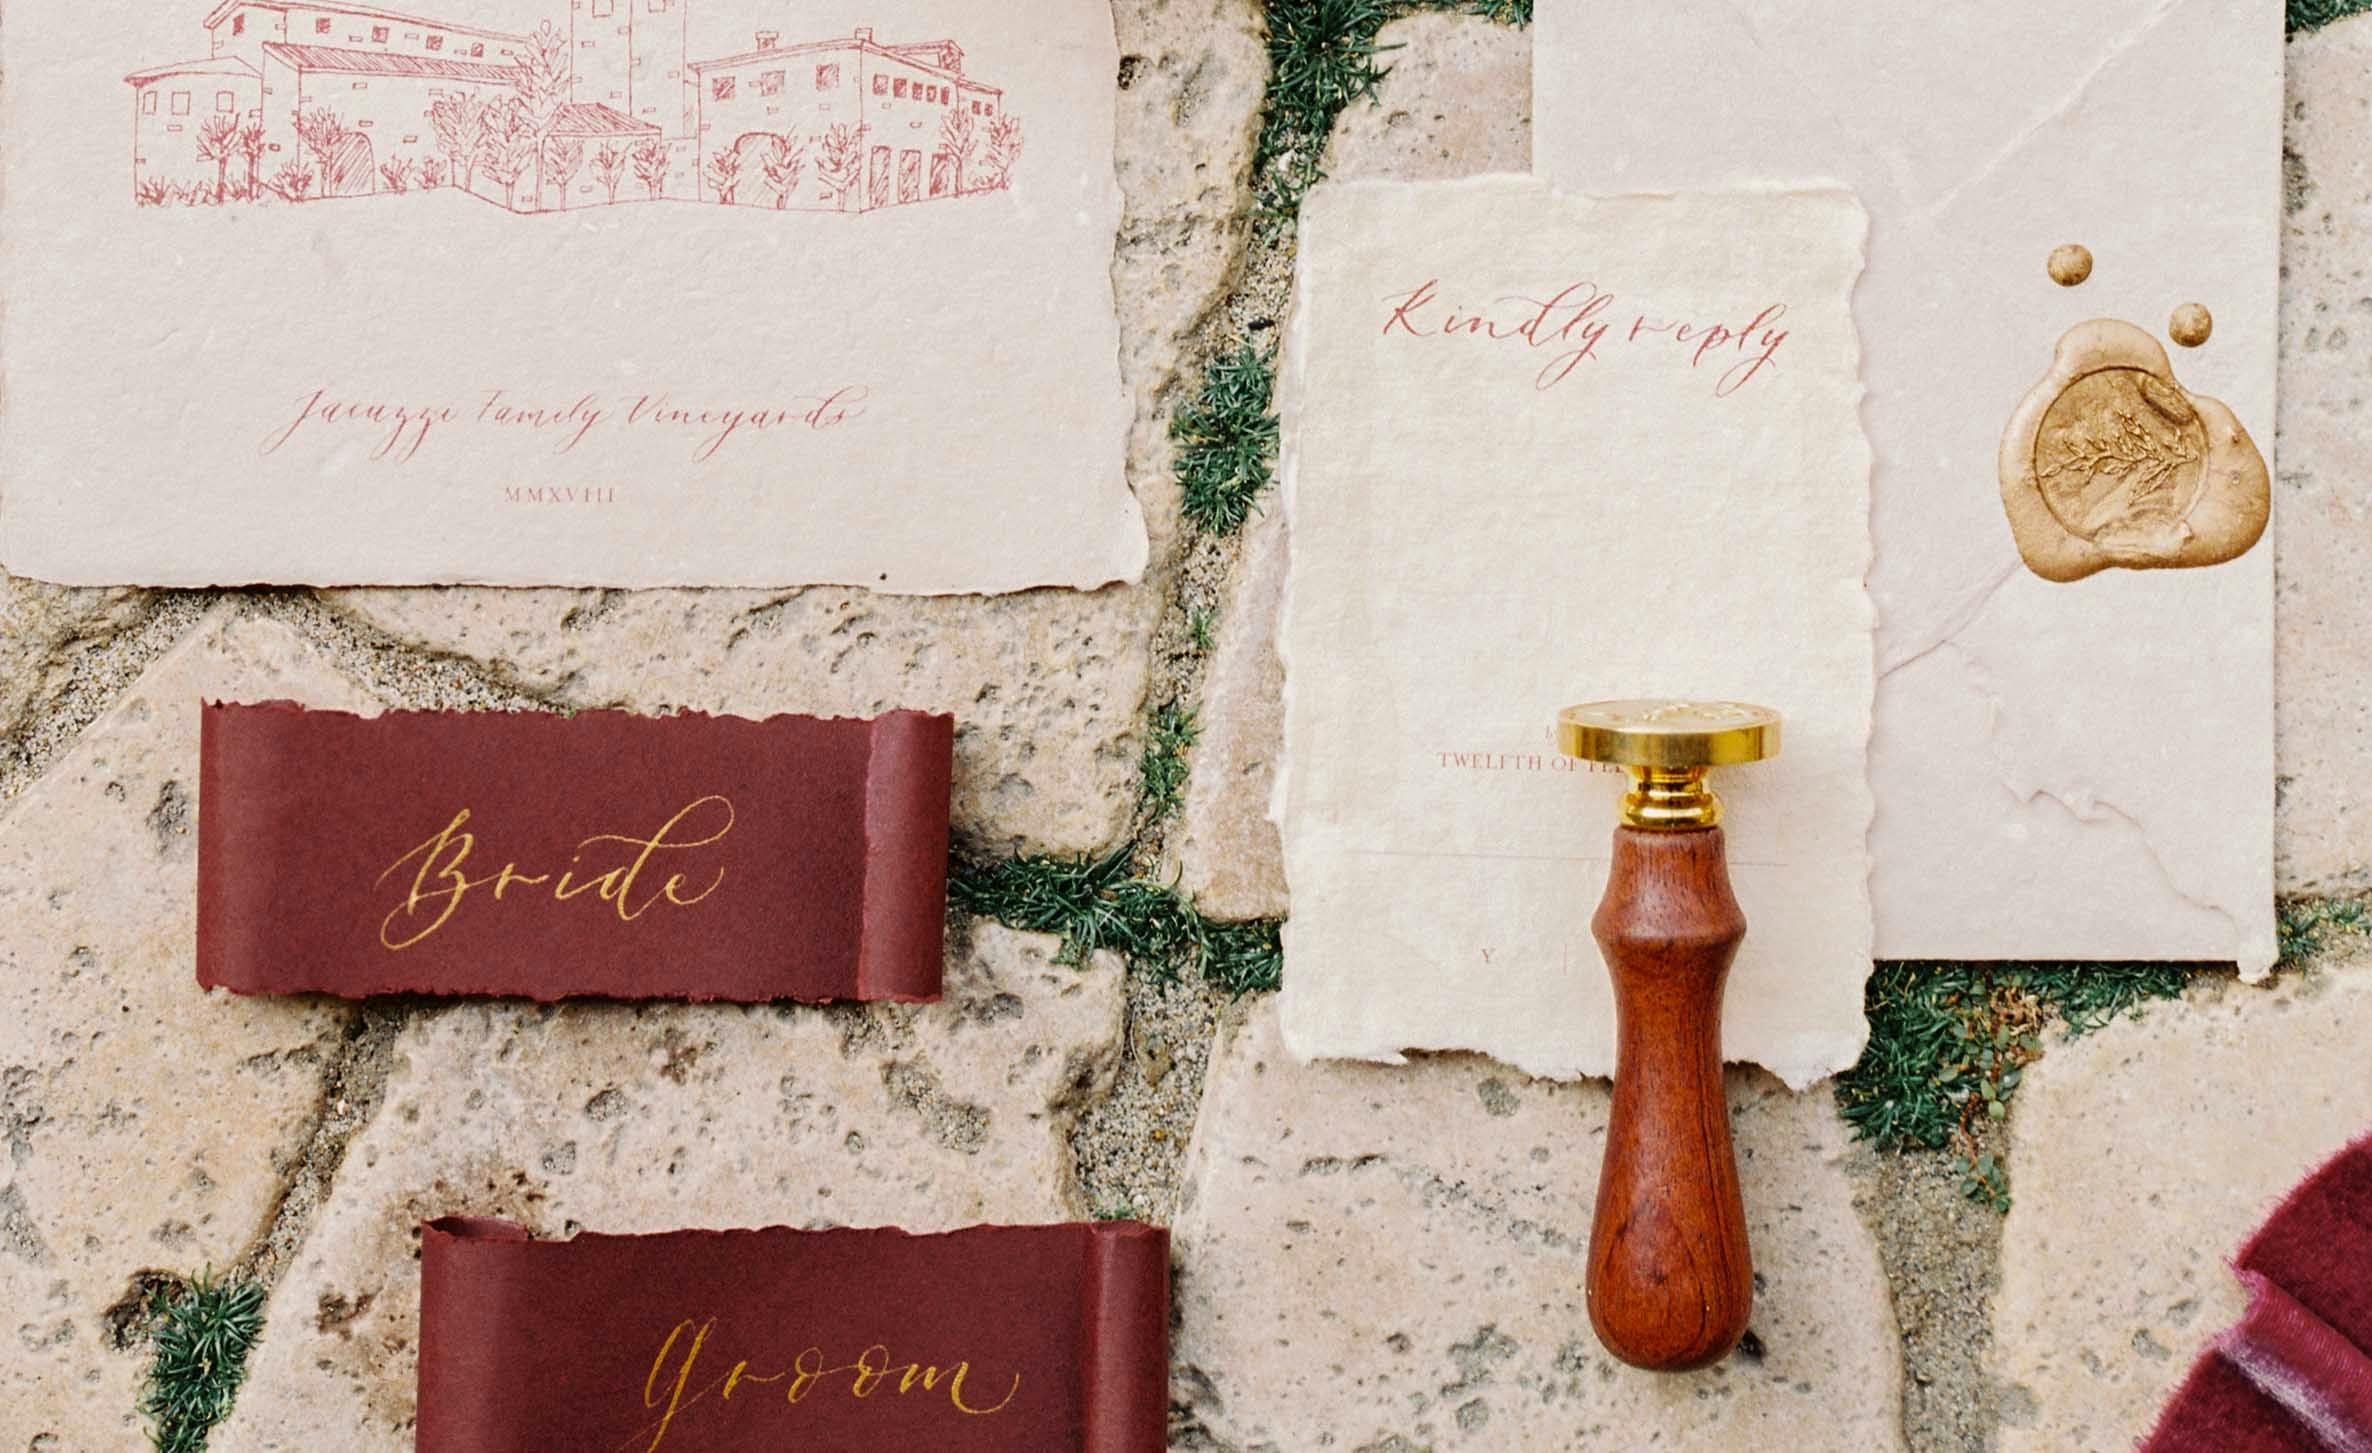 Jacuzzi Family Vineyards
MMXVIII
Kindly reply
TWELFTH OF
Y
Bride
Groom